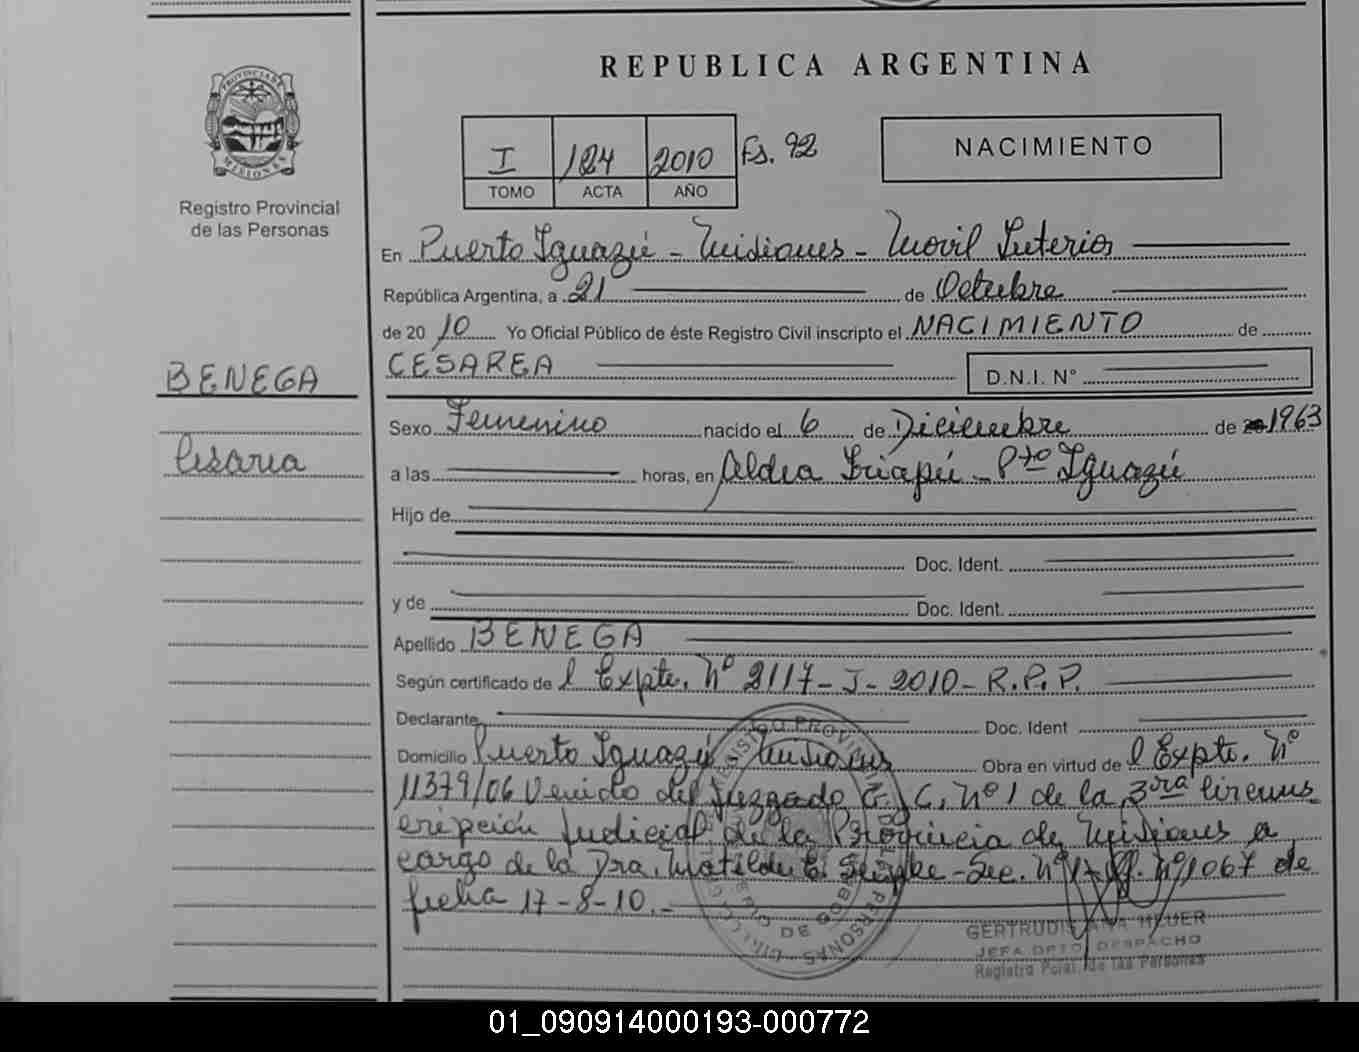 REPUBLICA ARGENTINA
PROVINCIA DE MISIONES
Registro Provincial
de las Personas
I 124 2010 Fs. 92
TOMO ACTA AÑO
NACIMIENTO
En Puerto Iguazú - Misiones - Movil Interior
República Argentina, a 21 de Octubre
de 20 10 Yo Oficial Público de éste Registro Civil inscripto el NACIMIENTO de
CESAREA D.N.I. N°
BENEGA
Sexo Femenino nacido el 6 de Diciembre de 1963
Cesarea
a las horas, en Aldea Iriapú - Pto Iguazú
Hijo de
Doc. Ident.
y de Doc. Ident.
Apellido BENEGA
Según certificado de l Expte. Nº 2117-J-2010-R.P.P.
Declarante Doc. Ident
Domicilio Puerto Iguazú - Misiones Obra en virtud de l Expte. Nº
11379/06 Venido del Juzgado C. C. Nº 1 de la 3ra Circuns
cripción Judicial de la Provincia de Misiones a
cargo de la Dra. Matilde - Sec. Nº 1 - Nº 1067 de
fecha 17-8-10.-
GERTRUDIS ANA MEUER
JEFA DPTO. DESPACHO
Registro Pcial. de las Personas
01_090914000193-000772